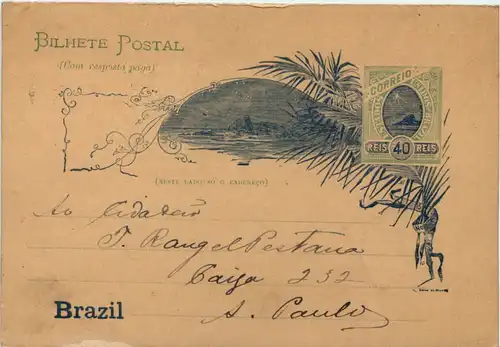 BILHETE POSTAL
(Com resposta paga)
CORREIO
REIS 40 REIS
(NESTE LADO SÓ O ENDEREÇO)
Ao Cidadão
F. Rangel Pestana
Caixa 232
S. Paulo
Brazil